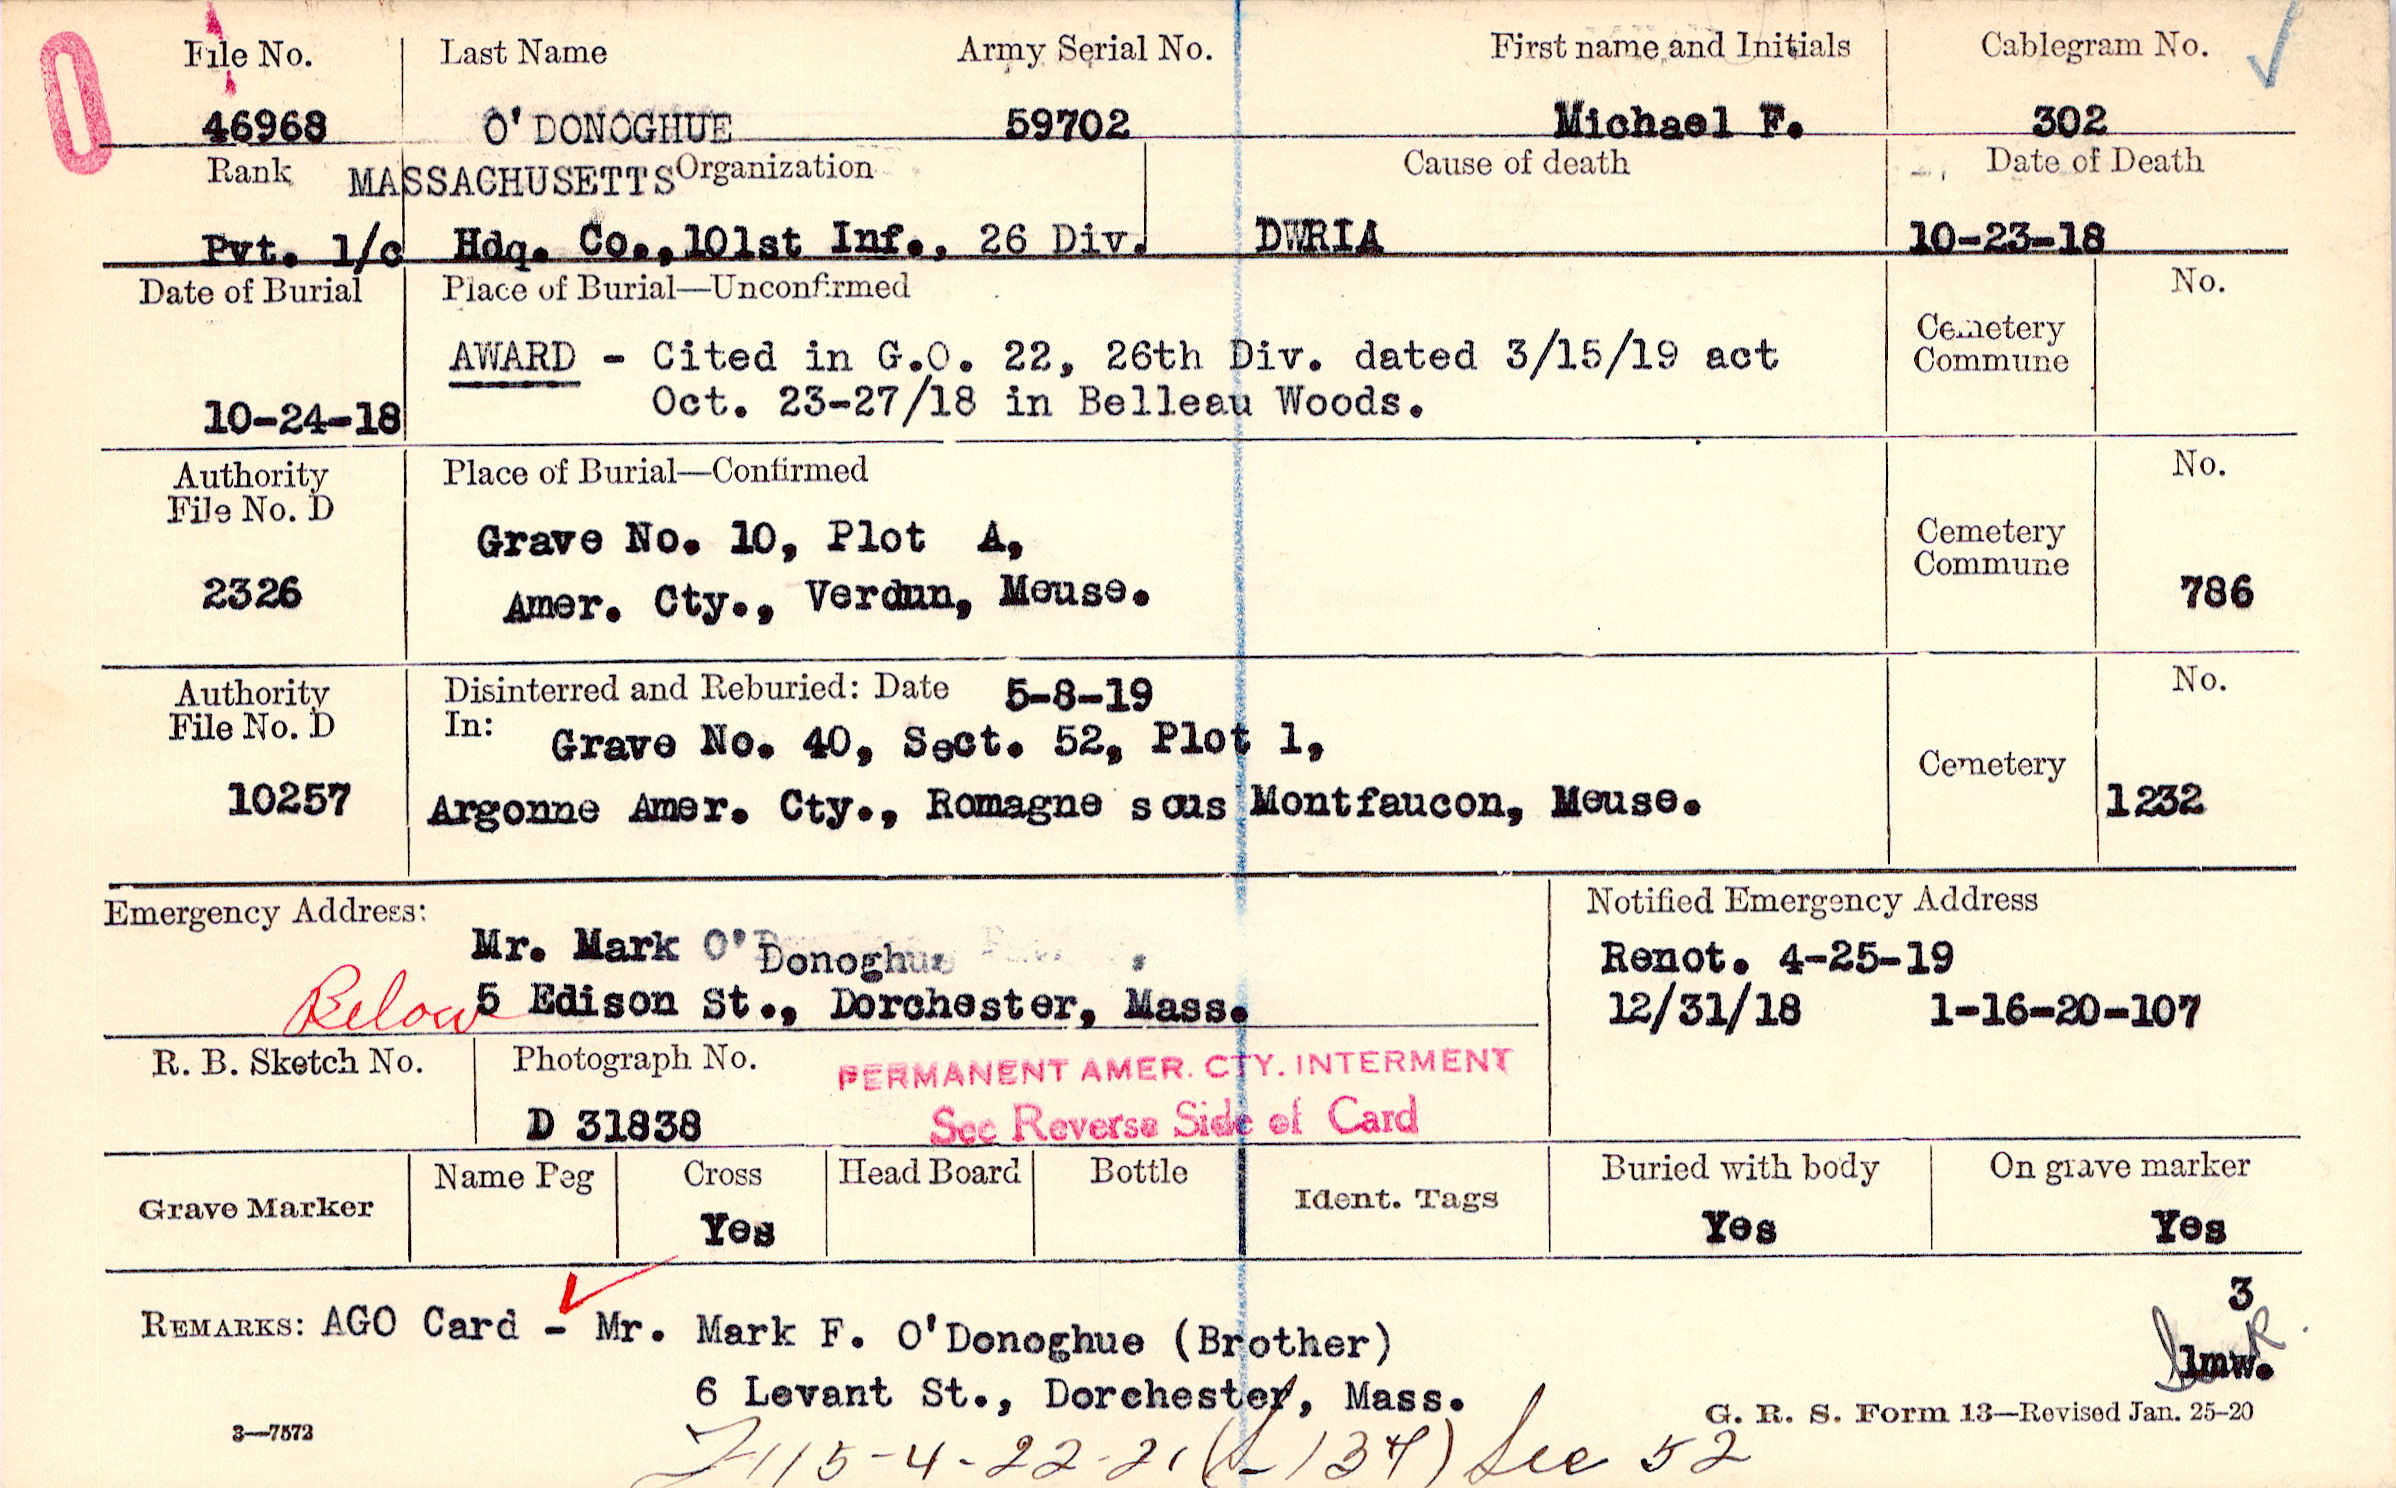 File No. Last Name Army Serial No. First name and Initials Cablegram No.
46968 O'DONOGHUE 59702 Michael F. 302
Rank MASSACHUSETTS Organization Cause of death Date of Death
Pvt. 1/c Hdq. Co., 101st Inf., 26 Div. DWRIA 10-23-18
Date of Burial Place of Burial—Unconfirmed No.
AWARD - Cited in G.O. 22, 26th Div. dated 3/15/19 act Cemetery
Oct. 23-27/18 in Belleau Woods. Commune
10-24-18
Authority Place of Burial—Confirmed No.
File No. D
Grave No. 10, Plot A, Cemetery
Commune
2326 Amer. Cty., Verdun, Meuse. 786
Authority Disinterred and Reburied: Date 5-8-19 No.
File No. D In: Grave No. 40, Sect. 52, Plot 1,
Cemetery
10257 Argonne Amer. Cty., Romagne sous Montfaucon, Meuse. 1232
Emergency Address: Notified Emergency Address
Mr. Mark O'Donoghue Renot. 4-25-19
Below 5 Edison St., Dorchester, Mass. 12/31/18 1-16-20-107
R. B. Sketch No. Photograph No. PERMANENT AMER. CTY. INTERMENT
D 31838 See Reverse Side of Card
Grave Marker Name Peg Cross Head Board Bottle Ident. Tags Buried with body On grave marker
Yes Yes Yes
3
REMARKS: AGO Card - Mr. Mark F. O'Donoghue (Brother)
lmw.
6 Levant St., Dorchester, Mass.
3—7572 G. R. S. Form 13—Revised Jan. 25-20
See 52